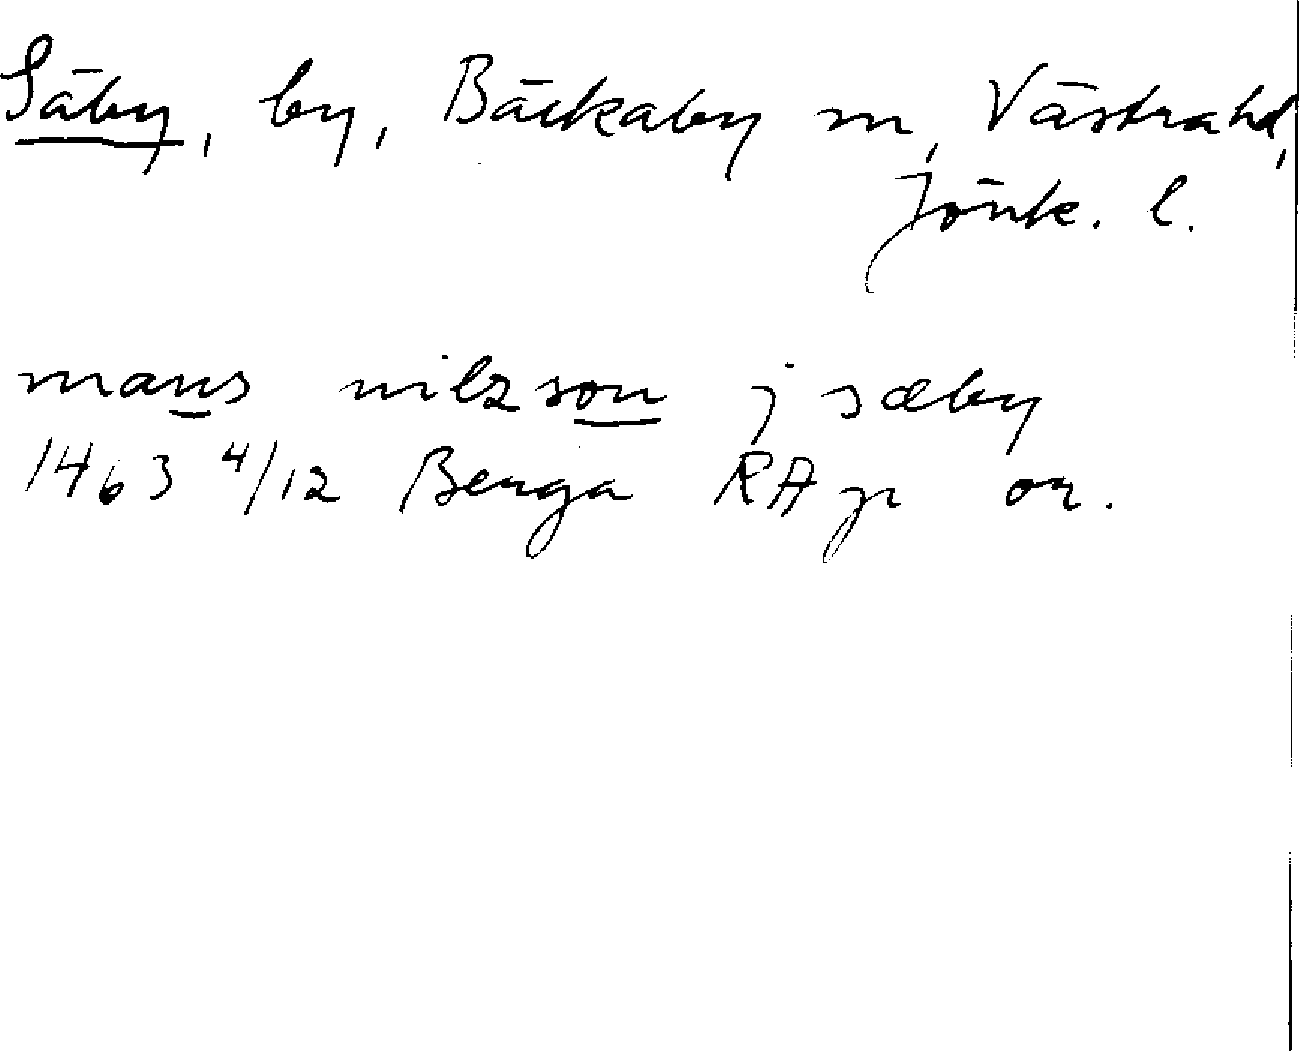 Säby, by, Bäckaby sn, Västra hd,
Jönk. l.
mans nilzson j sæby
1463 4/12 Benga RAp or.